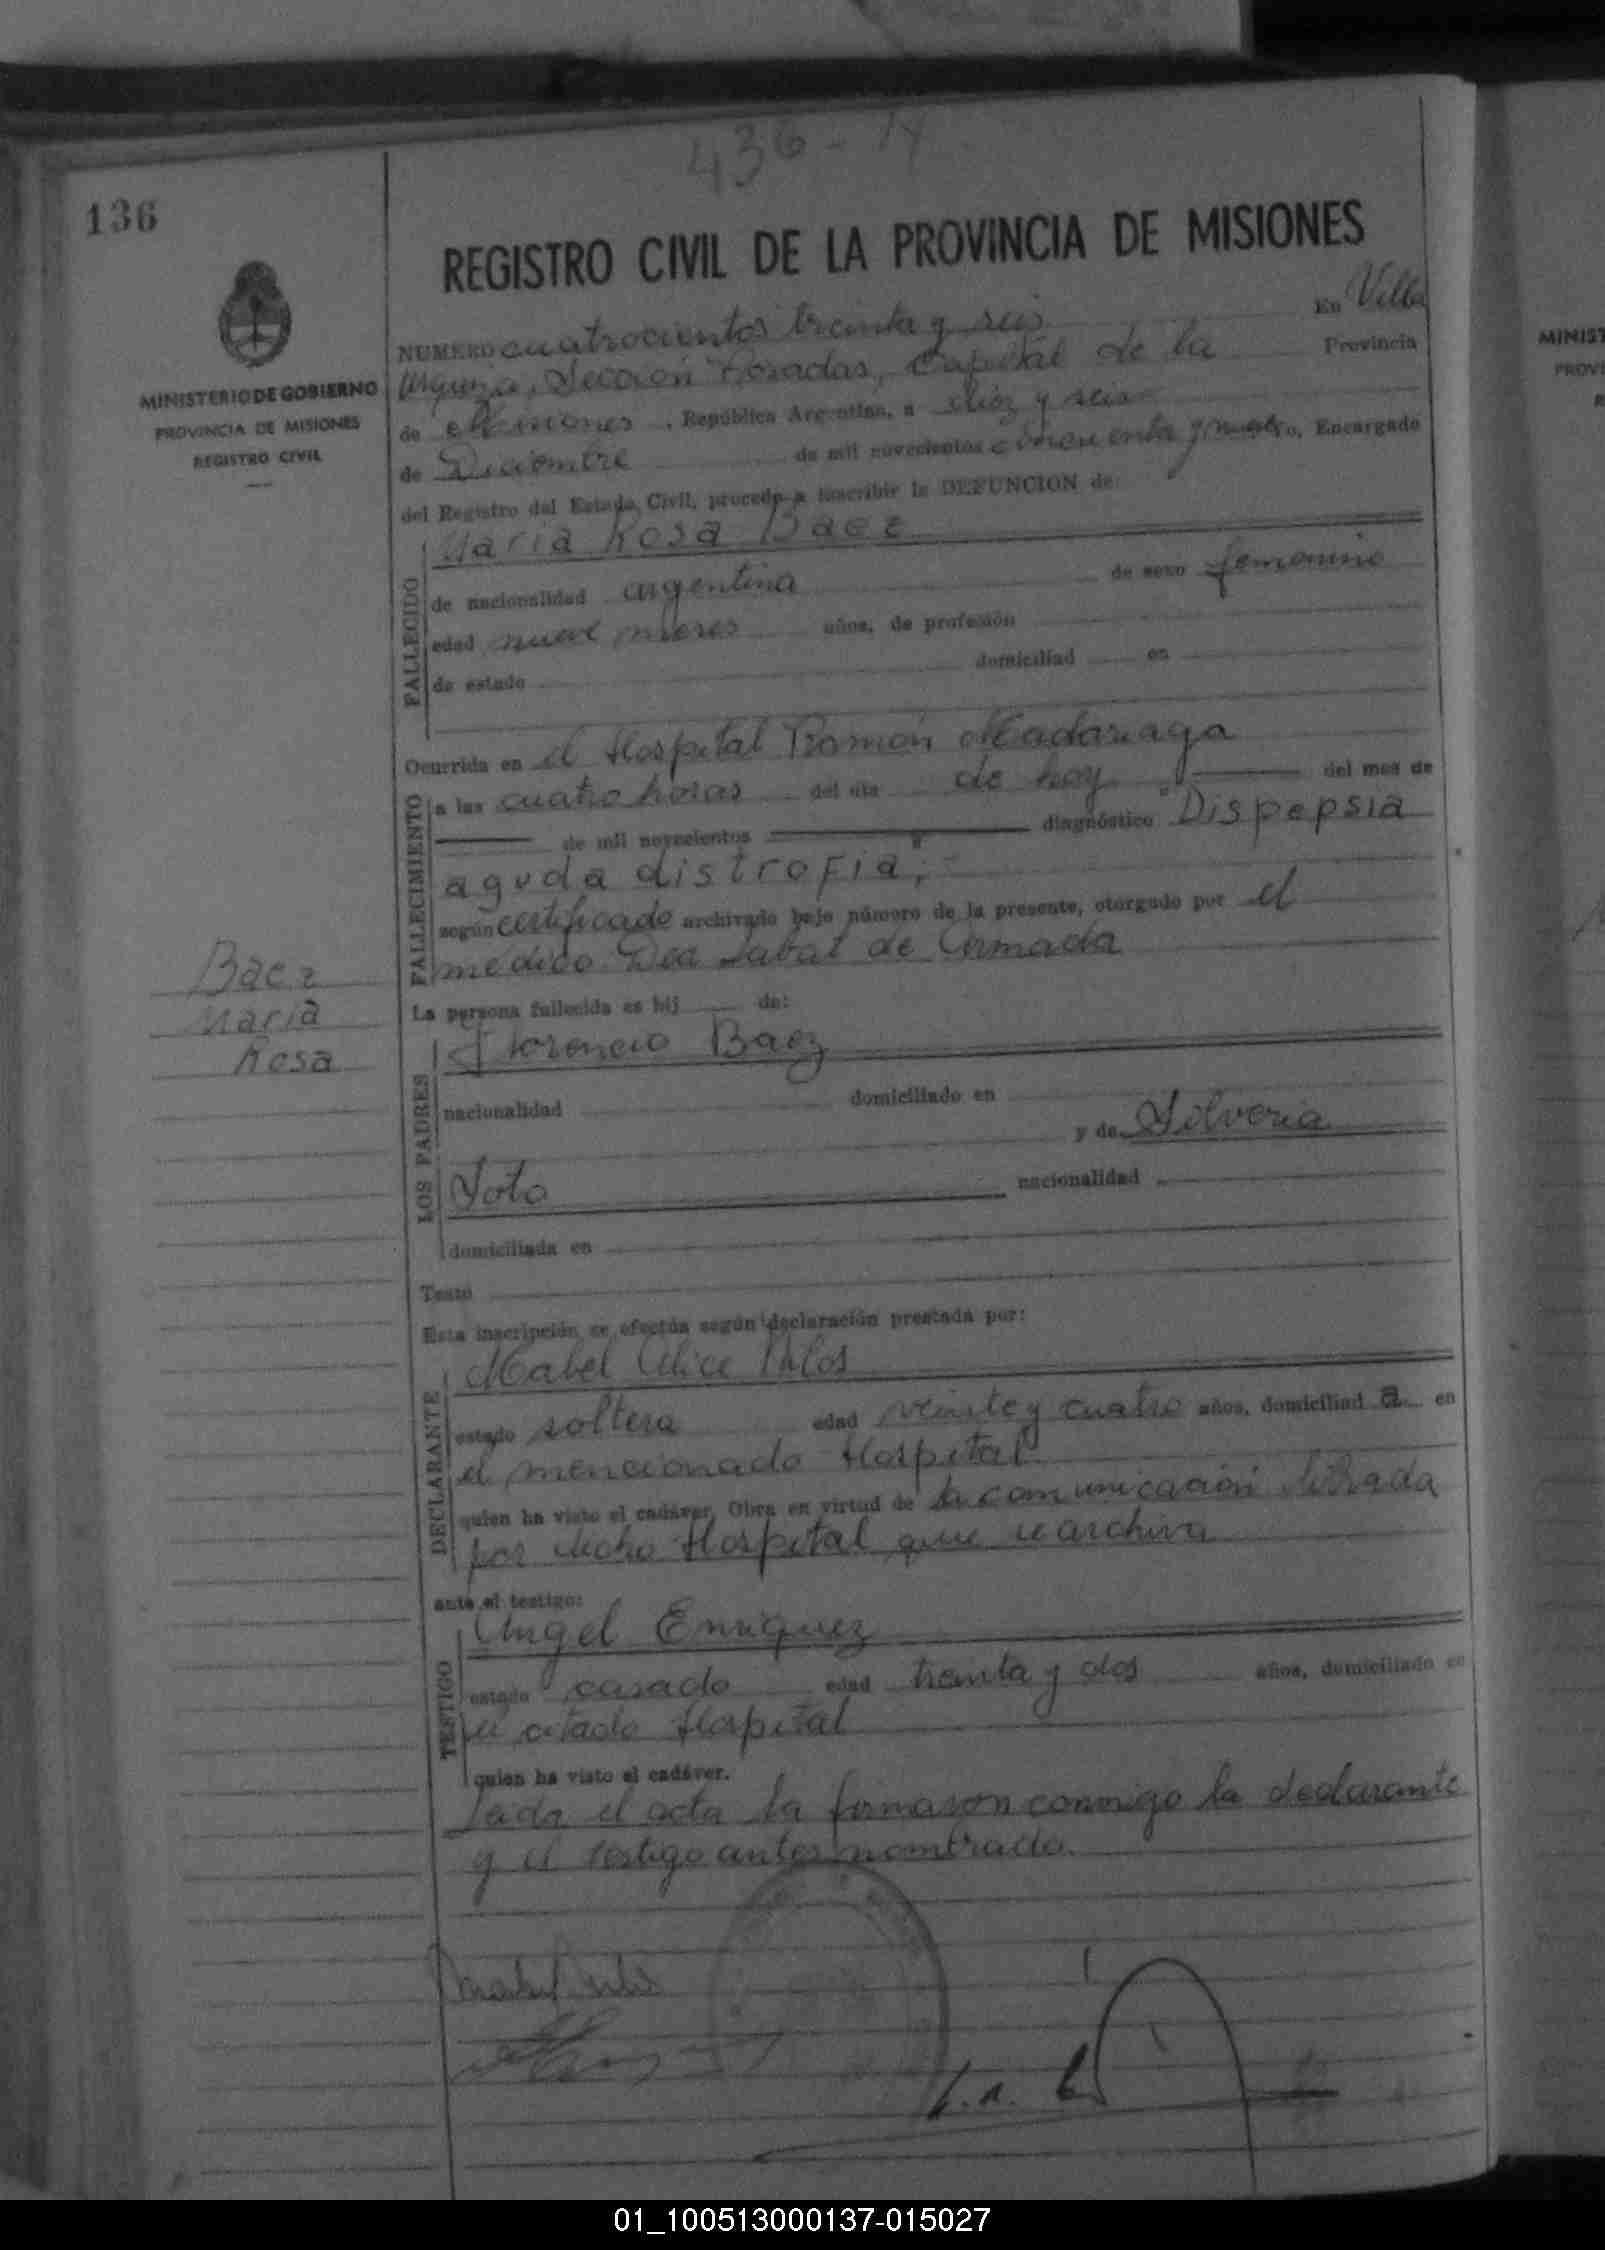 436-14
136
REGISTRO CIVIL DE LA PROVINCIA DE MISIONES
MINISTERIO DE GOBIERNO
PROVINCIA DE MISIONES
REGISTRO CIVIL
NUMERO cuatrocientos treinta y seis En Villa
Urquiza, Sección Posadas, Capital de la Provincia
de Misiones, República Argentina, a diez y seis
de Diciembre de mil novecientos cincuenta y
del Registro del Estado Civil, procedo a inscribir la DEFUNCION de:
Encargado
FALLECIDO
Maria Rosa Baez
de nacionalidad argentina de sexo femenino
edad nueve meses años, de profesión
de estado domiciliad en
Ocurrida en el Hospital Ramón Madariaga
FALLECIMIENTO
a las cuatro horas del día de hoy del mes de
de mil novecientos diagnóstico Dispepsia
aguda distrofia;
según certificado archivado bajo número de la presente, otorgado por el
médico Dra de Armada
La persona fallecida es hij de:
Baez
Maria
Rosa
LOS PADRES
Florencio Baez
nacionalidad domiciliado en
y de Silveria
Soto nacionalidad
domiciliada en
Testó
Esta inscripción se efectúa según declaración prestada por:
DECLARANTE
Mabel Alice
estado soltera edad veinte y cuatro años, domiciliad a en
el mencionado Hospital
quien ha visto el cadáver. Obra en virtud de la comunicación librada
por dicho Hospital que se archiva
ante el testigo:
TESTIGO
Angel Enriquez
estado casado edad treinta y dos años, domiciliado en
el citado Hospital
quien ha visto el cadáver.
Leida el acta la firmaron conmigo la declarante
y el testigo antes nombrado.
MINIST
PROVI
01_100513000137-015027